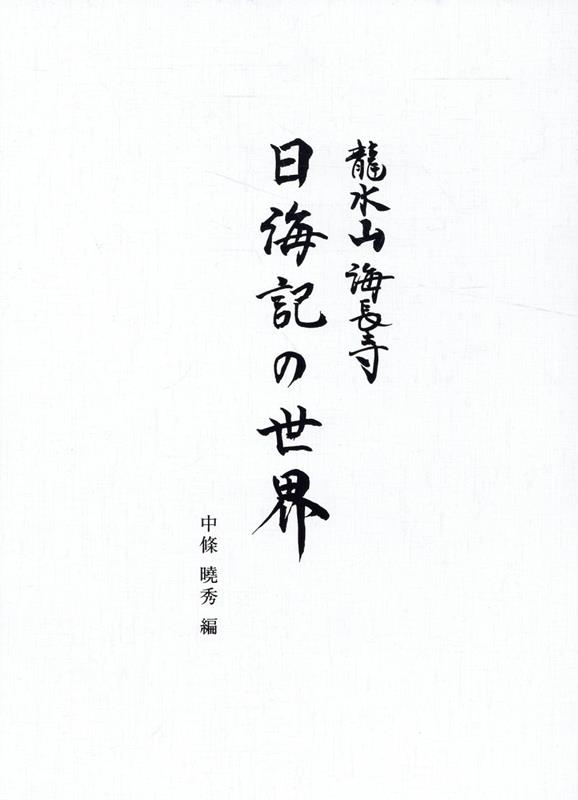 龍水山 海長寺
日海記の世界
中條 曉秀 編